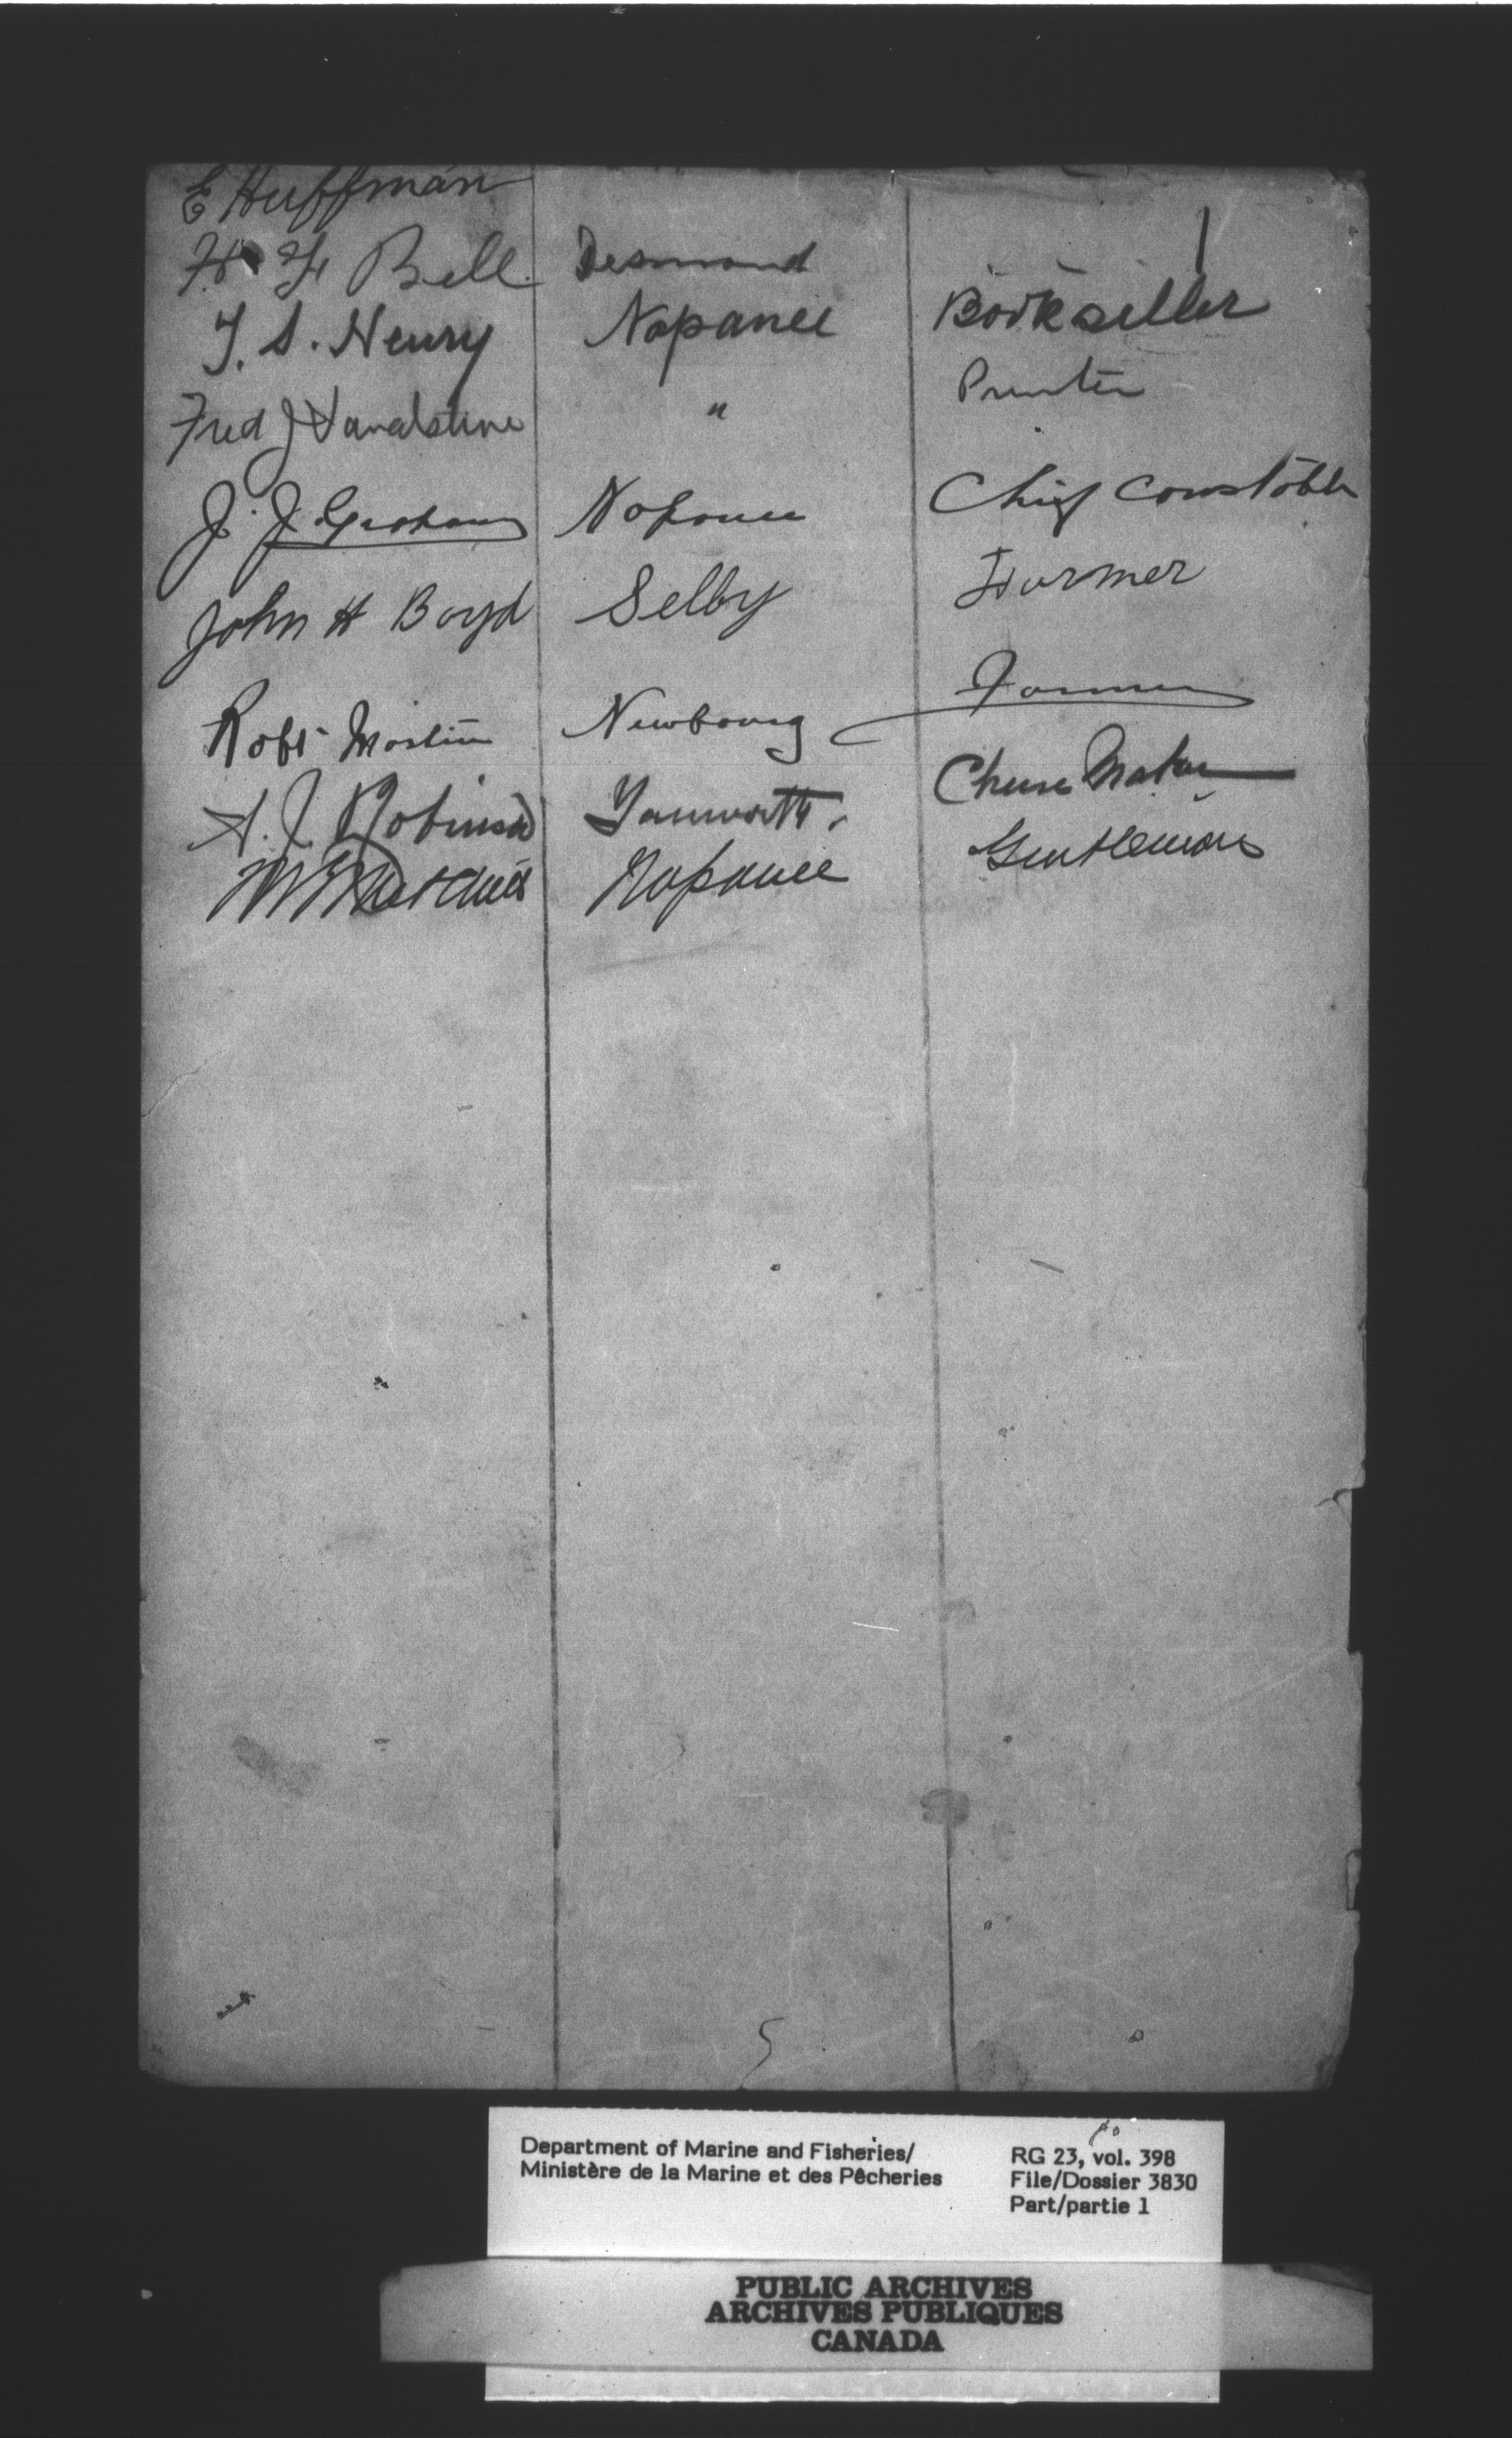 E Huffman
H. F. Bell Desmond
T. S. Henry Napanee Bookseller
Fred J Vanalstine " Printer
J. J. Graham Napanee Chief Constable
John H Boyd Selby Farmer
Robt Martin Newburg Farmer
A. J. Robinson Tamworth. Cheese Maker
Napanee Gentleman
5
Department of Marine and Fisheries/
Ministère de la Marine et des Pêcheries
RG 23, vol. 398
File/Dossier 3830
Part/partie 1
PUBLIC ARCHIVES
ARCHIVES PUBLIQUES
CANADA